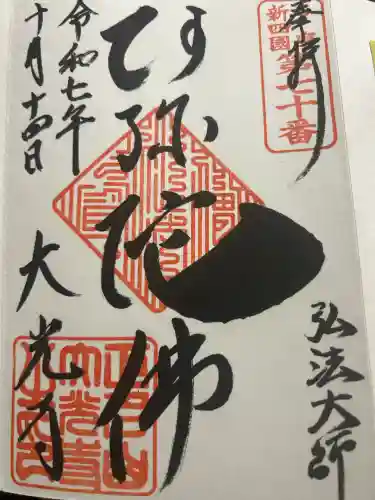 奉拝
新四國
第二十番
弘法大師
阿弥陀佛
大光寺
令和七年
十月十四日